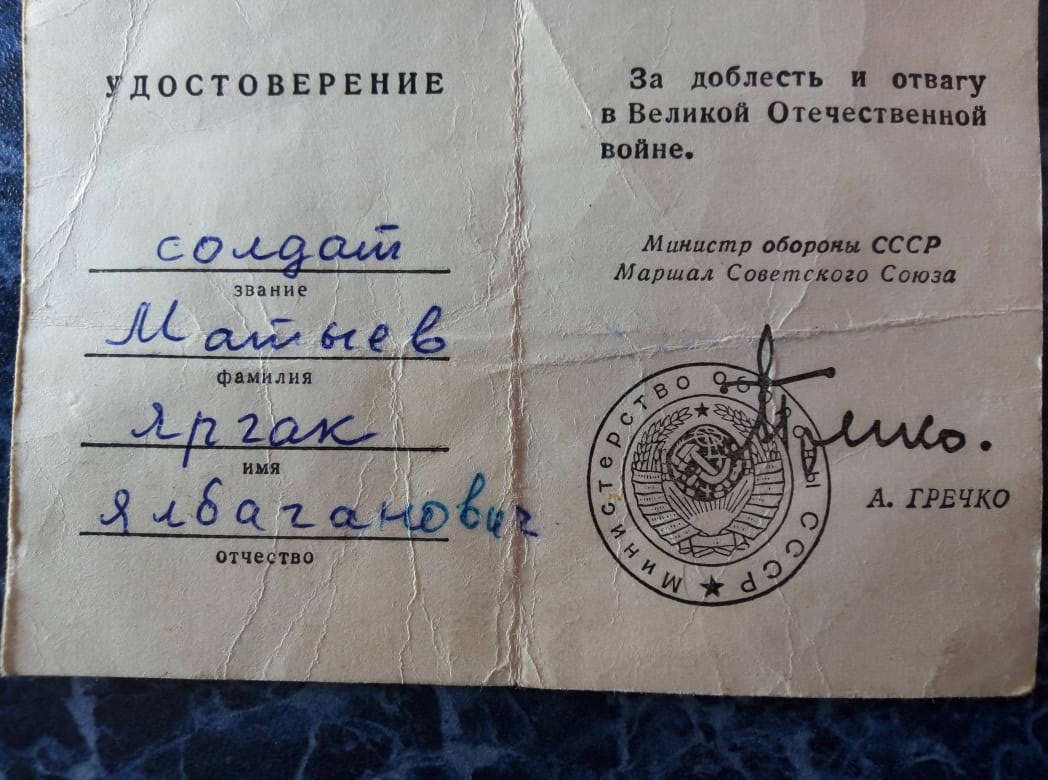 УДОСТОВЕРЕНИЕ
солдат
звание
Матыев
фамилия
Яргак
имя
Ялбаганович
отчество
За доблесть и отвагу
в Великой Отечественной
войне.
Министр обороны СССР
Маршал Советского Союза
Министерство Обороны СССР
Гречко.
А. ГРЕЧКО